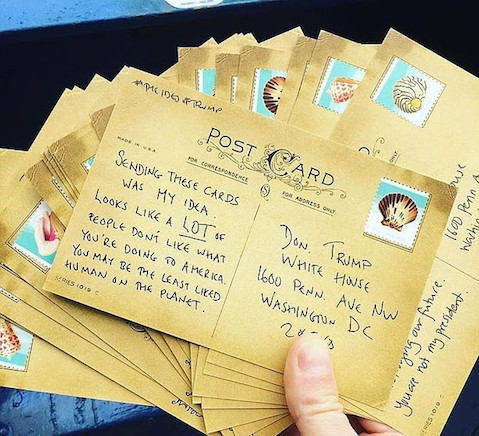 #THEIDESOFTRUMP
MADE IN U.S.A.
POST CARD
FOR CORRESPONDENCE
FOR ADDRESS ONLY
SENDING THESE CARDS
WAS MY IDEA.
LOOKS LIKE A LOT OF
PEOPLE DON'T LIKE WHAT
YOU'RE DOING TO AMERICA.
YOU MAY BE THE LEAST LIKED
HUMAN ON THE PLANET.
SERIES 1019 C
DON. TRUMP
WHITE HOUSE
1600 PENN. AVE NW
WASHINGTON DC
1600 Penn A
Washin
our future.
you are not my president.
SERIES 1019 C